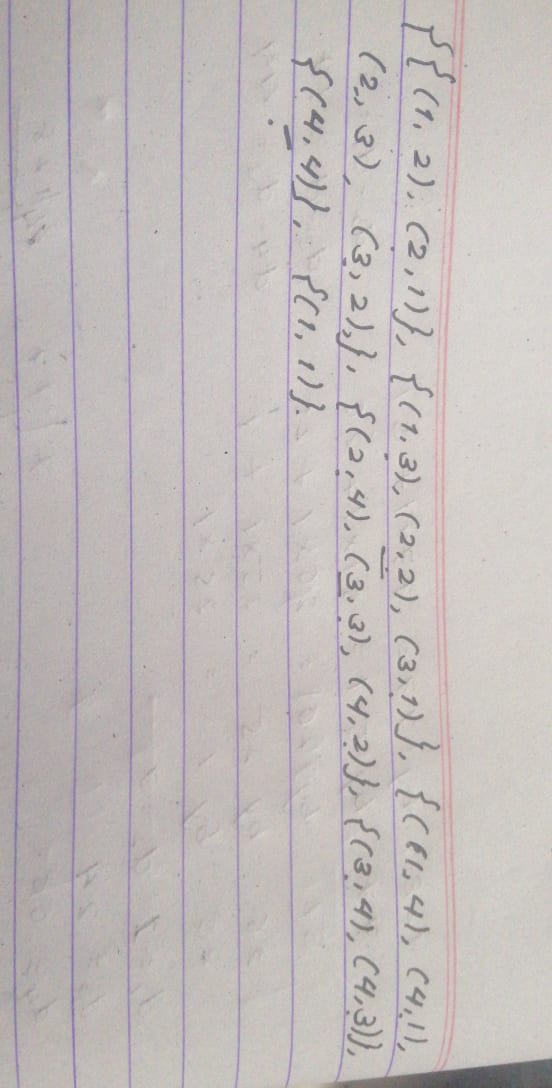 {{(1, 2), (2,1)}, {(1,3), (2,2), (3,1)}, {(1,4), (4,1),
(2, 3), (3,2),}, {(2,4), (3,3), (4,2)}, {(3,4), (4,3)},
{(4,4)}, {(1, 1)}.